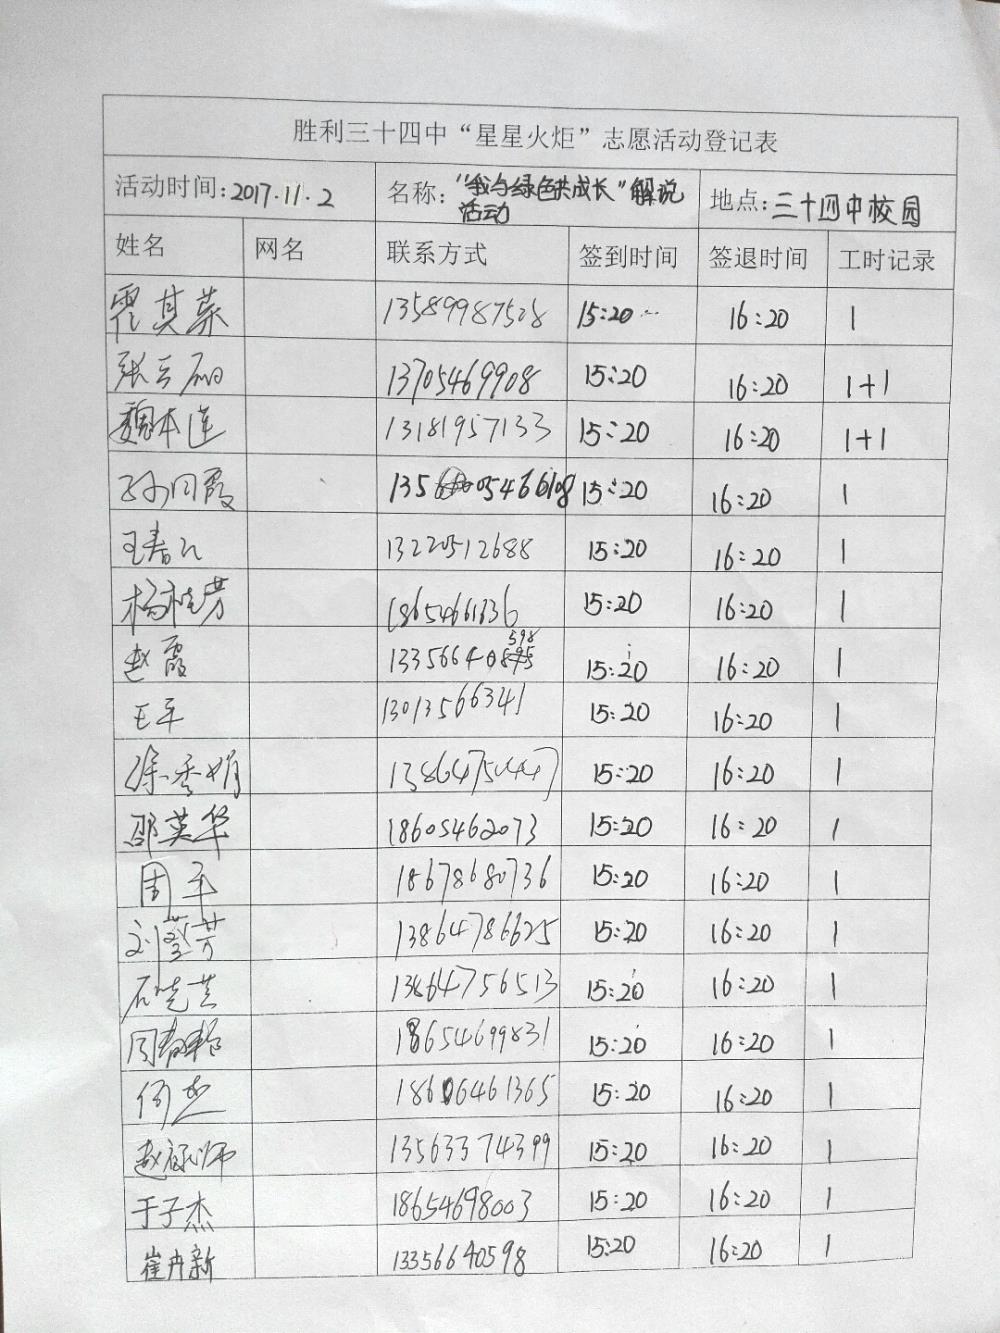 胜利三十四中“星星火炬”志愿活动登记表
活动时间:2017.11.2 名称:“我与绿色共成长”解说活动 地点:三十四中校园
姓名 网名 联系方式 签到时间 签退时间 工时记录
霍其菜 13589987508 15:20 16:20 1
张云 13705469908 15:20 16:20 1+1
魏本莲 13181957133 15:20 16:20 1+1
孙同霞 15:20 16:20 1
王春 13220512688 15:20 16:20 1
杨桂芳 1865461336 15:20 16:20 1
赵霞 15:20 16:20 1
王平 13013566341 15:20 16:20 1
徐秀娟 15:20 16:20 1
邵英华 18605462073 15:20 16:20 1
周平 18678680736 15:20 16:20 1
刘登芳 13864786625 15:20 16:20 1
石晓芸 13864756513 15:20 16:20 1
周 18654699831 15:20 16:20 1
何 15:20 16:20 1
赵 师 13563374399 15:20 16:20 1
于子杰 18654698003 15:20 16:20 1
崔冉新 13356640598 15:20 16:20 1